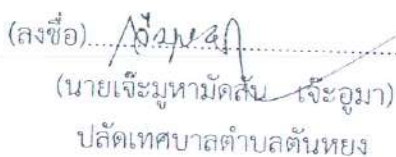 (ลงชื่อ)
(นายเจ๊ะมูหามัดสัน เจ๊ะอูมา)
ปลัดเทศบาลตำบลตันหยง